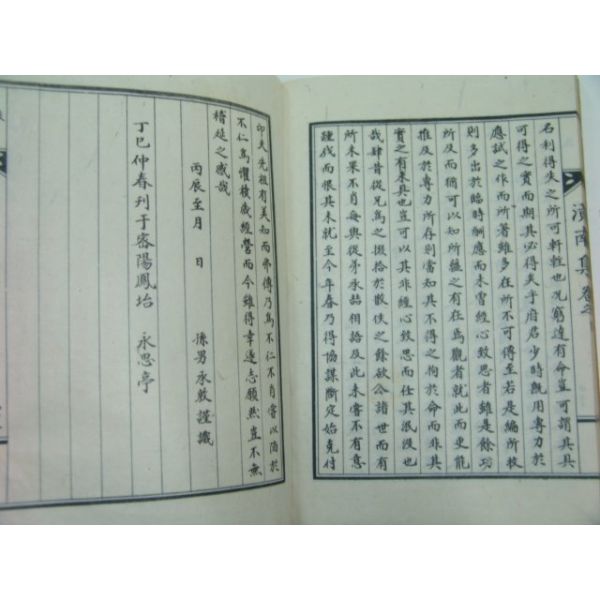 名利得失之所可軒輊也況窮達有命豈可謂其具
可得之實而期其必得夫乎府君少時旣用專力於
應試之作而所著雖多在所不可傳至若是編所收
則多出於臨時酬應而未嘗經心致思者雖是餘功
所及而猶可以知所蘊之有在爲觀者就此而更能
推及於專力所存則當知其不得之拘於命而非其
實之有未具也豈可以其非經心致思而任其泯沒也
哉肆昔從兄爲之掇拾於散佚之餘欲公諸世而有
所未果不肖每與從弟承喆相語及此未嘗不有意
踵成而恨其未就至今年春乃得協謀斷定始克付
濱南集 卷之
印夫先祖有美知而弗傳乃爲不仁不肖常以陷於
不仁爲懼積歲經營而今雖得幸遂志願然豈不無
稽延之感哉
丙辰至月 日 孫男承敎謹識
丁巳仲春刊于密陽鳳垈 永思亭